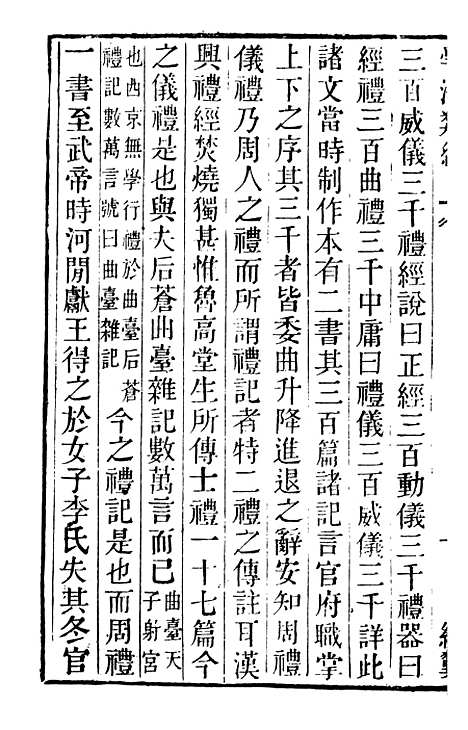 三百威儀三千禮經說曰正經三百動儀三千禮器曰
經禮三百曲禮三千中庸曰禮儀三百威儀三千詳此
諸文當時制作本有二書其三百篇諸記言官府職掌
上下之序其三千者皆委曲升降進退之辭安知周禮
儀禮乃周人之禮而所謂禮記者特二禮之傳註耳漢
興禮經焚燒獨甚惟魯高堂生所傳士禮一十七篇今
之儀禮是也與夫后蒼曲臺雜記數萬言而已曲臺天子射宮
也西京無學行禮於曲臺后蒼禮記數萬言號曰曲臺雜記今之禮記是也而周禮
一書至武帝時河閒獻王得之於女子李氏失其冬官